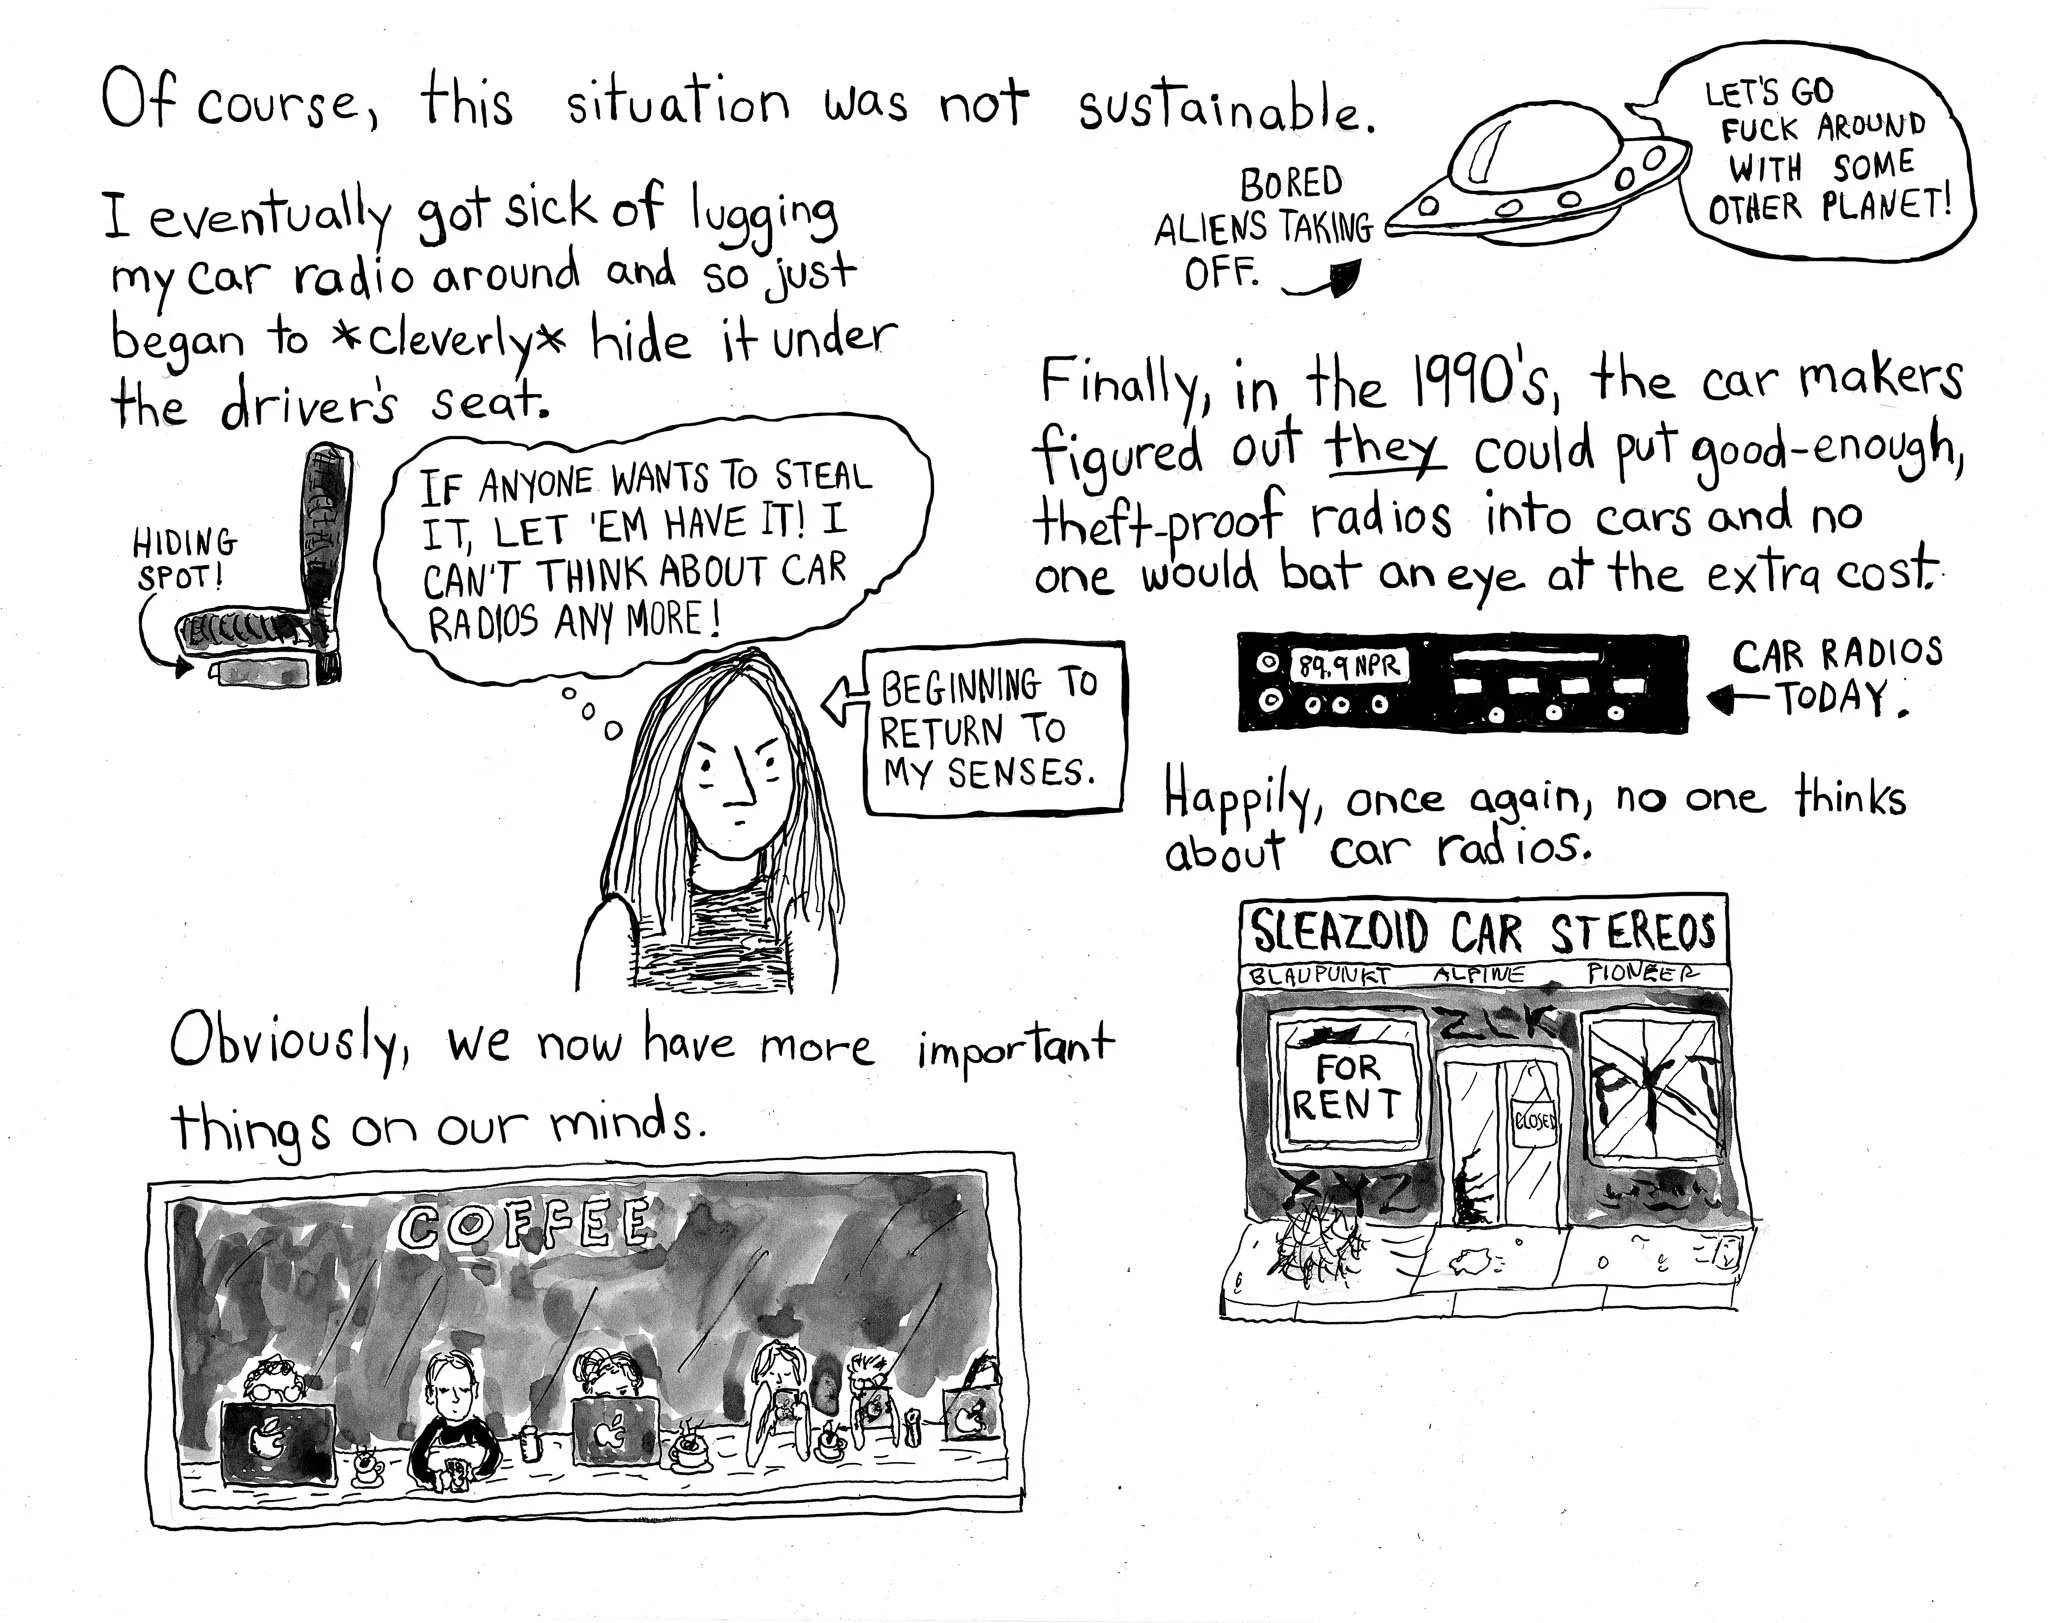 Of course, this situation was not sustainable.
BORED
ALIENS TAKING
OFF.
LET'S GO
FUCK AROUND
WITH SOME
OTHER PLANET!
I eventually got sick of lugging
my car radio around and so just
began to *cleverly* hide it under
the driver's seat.
HIDING
SPOT!
IF ANYONE WANTS TO STEAL
IT, LET 'EM HAVE IT! I
CAN'T THINK ABOUT CAR
RADIOS ANY MORE!
BEGINNING TO
RETURN TO
MY SENSES.
Finally, in the 1990's, the car makers
figured out they could put good-enough,
theft-proof radios into cars and no
one would bat an eye at the extra cost.
89.9 NPR
CAR RADIOS
TODAY.
Happily, once again, no one thinks
about car radios.
SLEAZOID CAR STEREOS
BLAUPUNKT ALPINE PIONEER
ZLK
FOR
RENT
CLOSED
PKT
XYZ
Obviously, we now have more important
things on our minds.
COFFEE